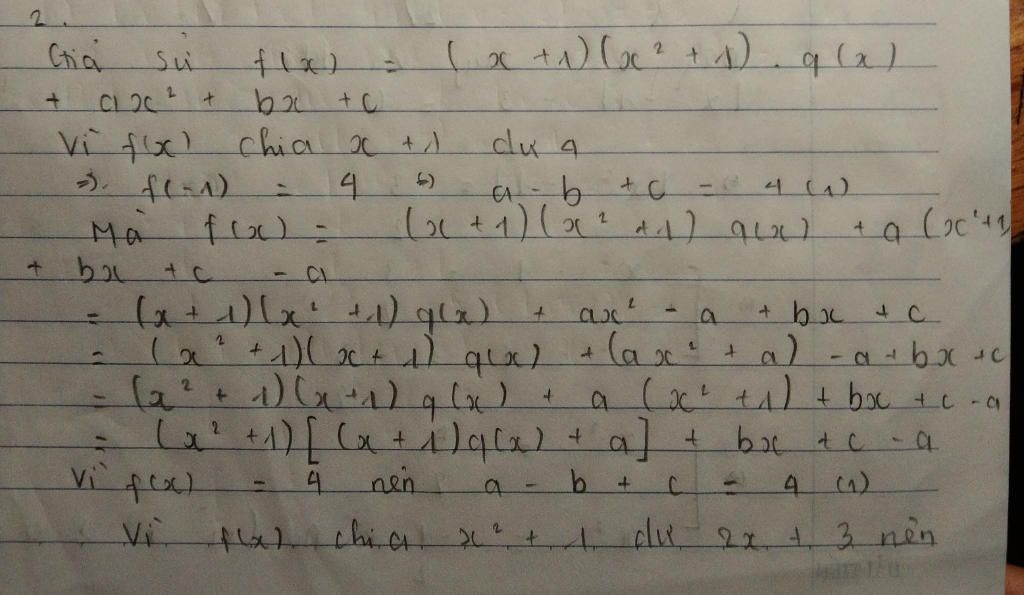 2.
Giả sử f(x) = (x+1)(x² + 1) . q(x)
+ ax² + bx + c
Vì f(x) chia x + 1 dư 4
=> f(-1) = 4 (=) a - b + c = 4 (1)
Mà f(x) = (x + 1)(x² + 1) q(x) + a (x²+1)
+ bx + c - a
= (x + 1)(x² + 1) q(x) + ax² - a + bx + c
= (x² + 1)(x + 1) q(x) + (ax² + a) - a + bx + c
= (x² + 1)(x + 1) q(x) + a (x² + 1) + bx + c - a
= (x² + 1)[(x + 1)q(x) + a] + bx + c - a
Vì f(x) = 4 nên a - b + c = 4 (1)
Vì f(x) chia x² + 1 dư 2x + 3 nên